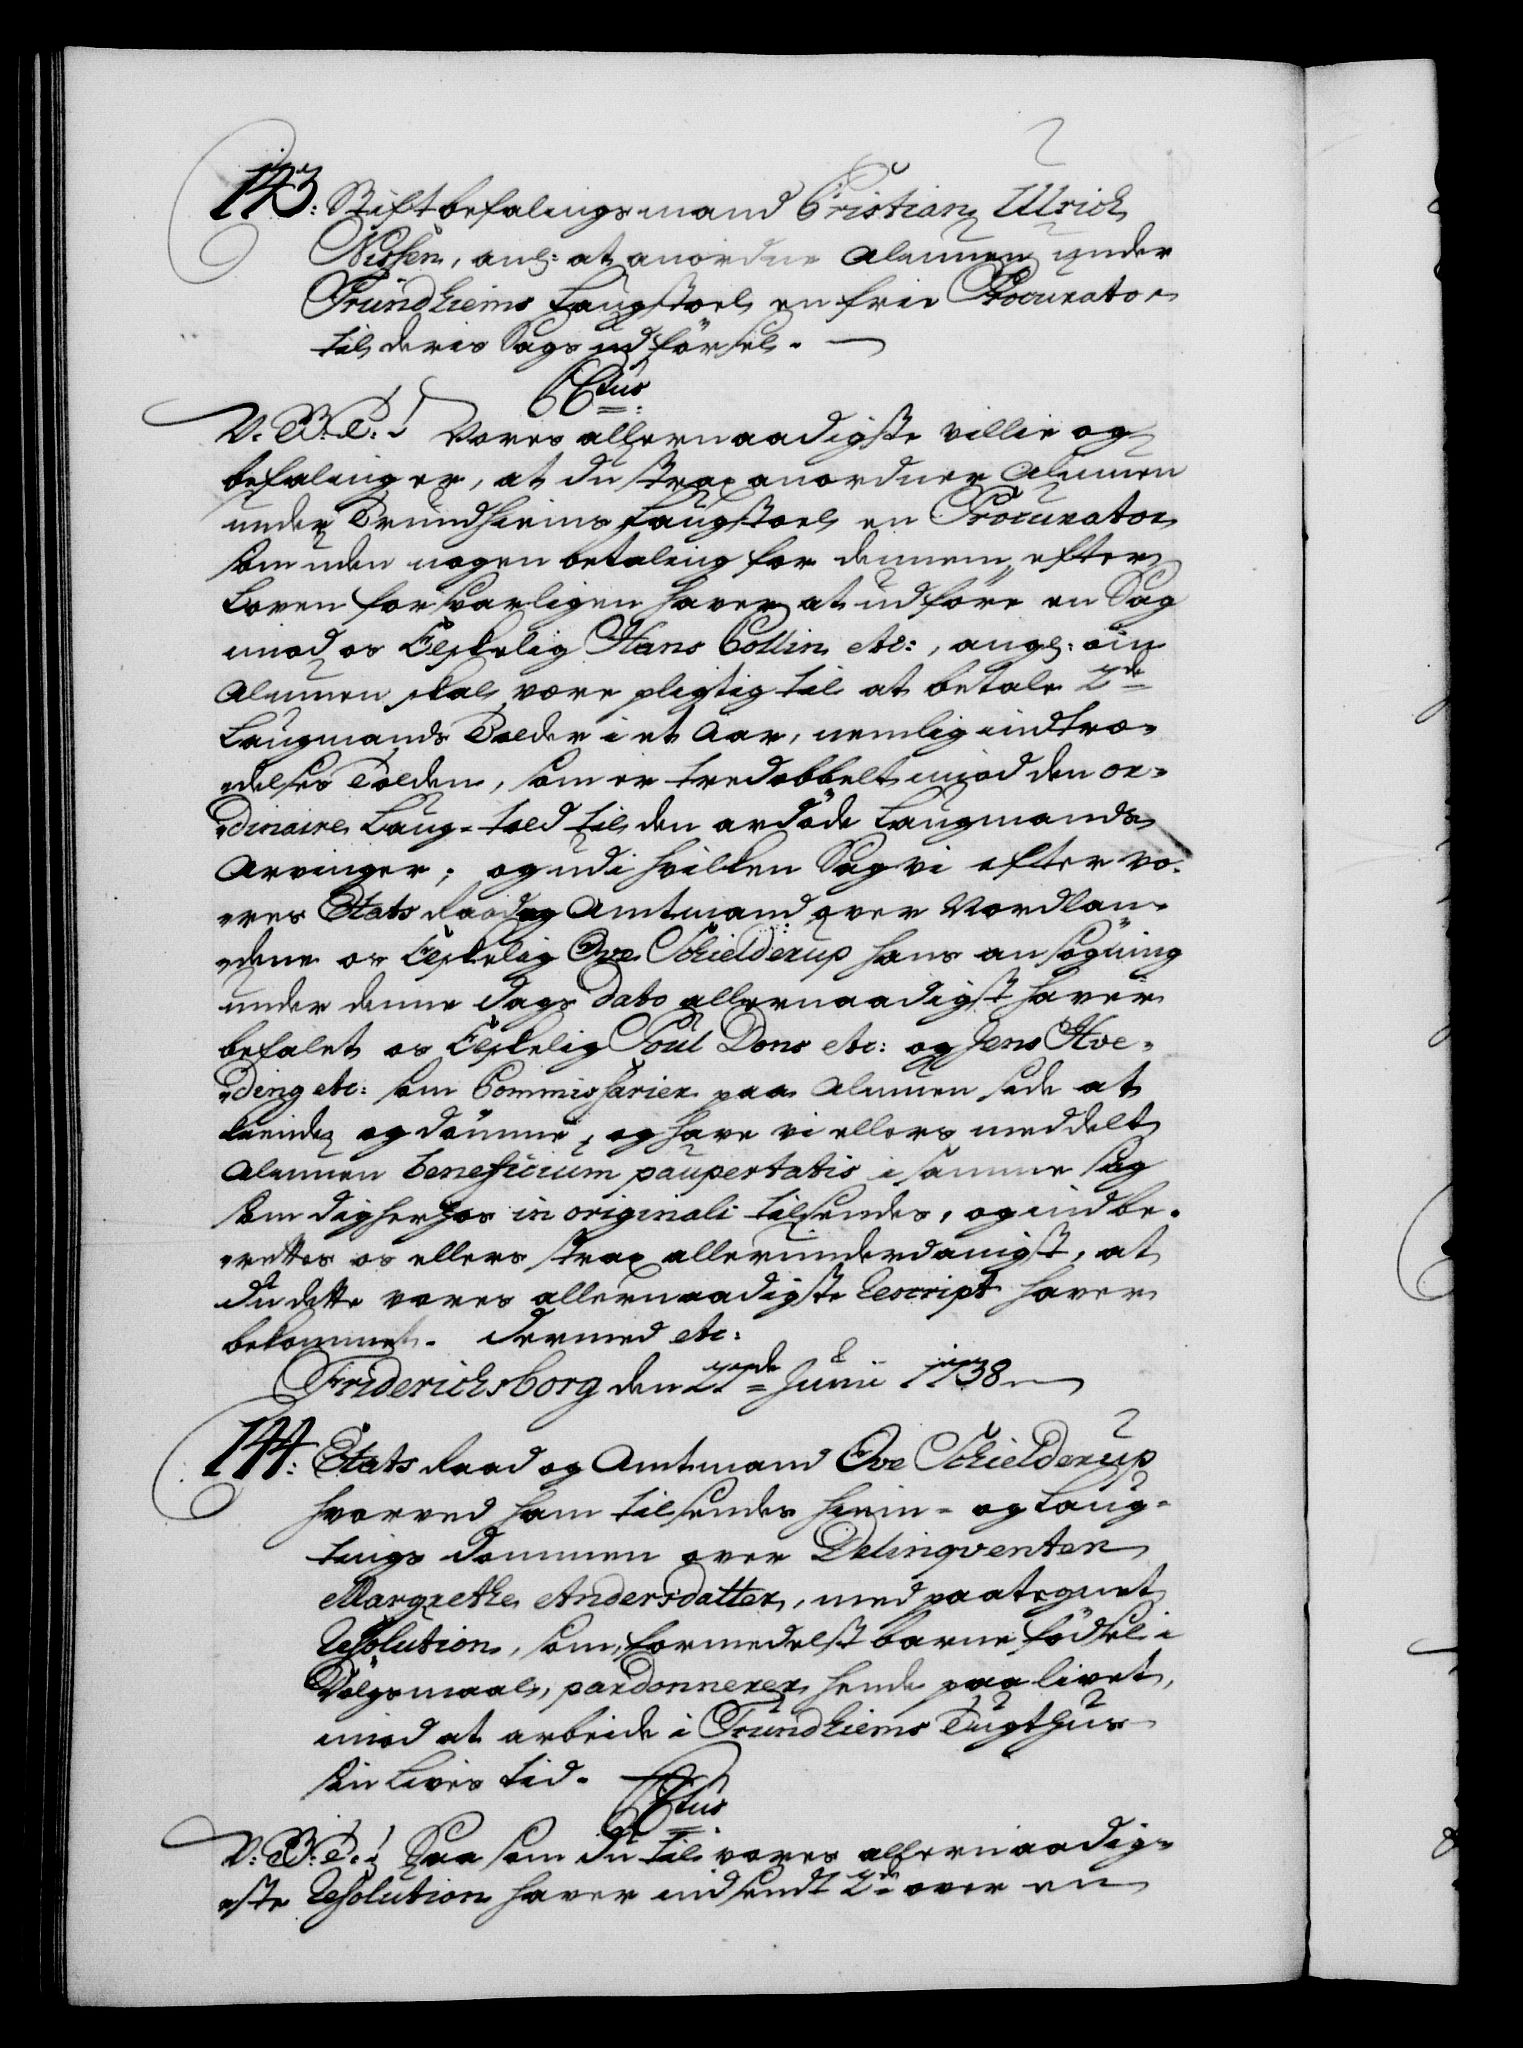 143: Stiftbefalingsmand Cristian Ulrich
Nissen, ang: at anordne Almuen under
Trundhiems Laugstoel en frie Procurator
til deris Sags udförsel.
C6tus
V. B. T.! Vores allernaadigste villie og
befaling er, at du strax anordner Almuen
under Trundhiems Laugstoel en Procurator
som uden nogen betaling for dennem, efter
Loven forsvarligen haver at udföre en Sag
mod os Elskelig Hans Collin etc:, angl: om
Almuen skal være pligtig til at betale 2de
Laugmands Tolder i et Aar, nemlig indtræ-
delses Tolden, som er tredobbelt mod den or-
dinaire Laug-told til den afdöde Laugmands
Arvinger; og udi hvilken Sag vi efter vo-
res Etats Raad og Amtmand over Nordlan-
dene os Elskelig Ove Schielderup hans ansögning
under denne Dags Dato allernaadigst haver
befalet os Elskelig Poul Dons etc: og Jens Hve-
ding etc: som Commissarier paa Almuen sede at
kiende og dömme, og have vi ellers meddelt
Almuen beneficium paupertatis i samme sag
som dig herhos in originali tilsendes, og indbe-
rettes os ellers strax allerunderdanigst, at
du dette vores allernaadigste Rescript haver
bekommet. Dermed etc:
Friderichsborg den 27de Junii 1738
144: Etats Raad og Amtmand Ove Schielderup
hvorved ham tilsendes hiem- og Laug-
tings Dommen over Delinqventen
Margrethe Andersdatter, med paategnet
Resolution, som, formedelst barne födsel i
Dölgsmaal, pardonnerer hende paa livet,
mod at arbeide i Trundhiems Tugthuus
sin Livis tid.
C6tus
V: B: T.! Saa som du til vores allernaadig-
ste Resolution haver indsendt 2de over en